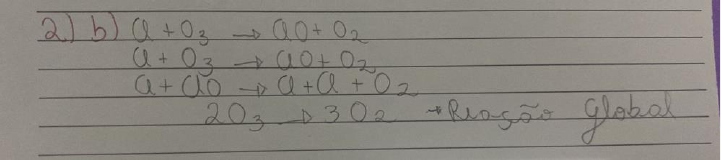 2) b) Cl + O3 → ClO + O2
Cl + O3 → ClO + O2
Cl + ClO → Cl + Cl + O2
2O3 → 3O2 → Reação Global